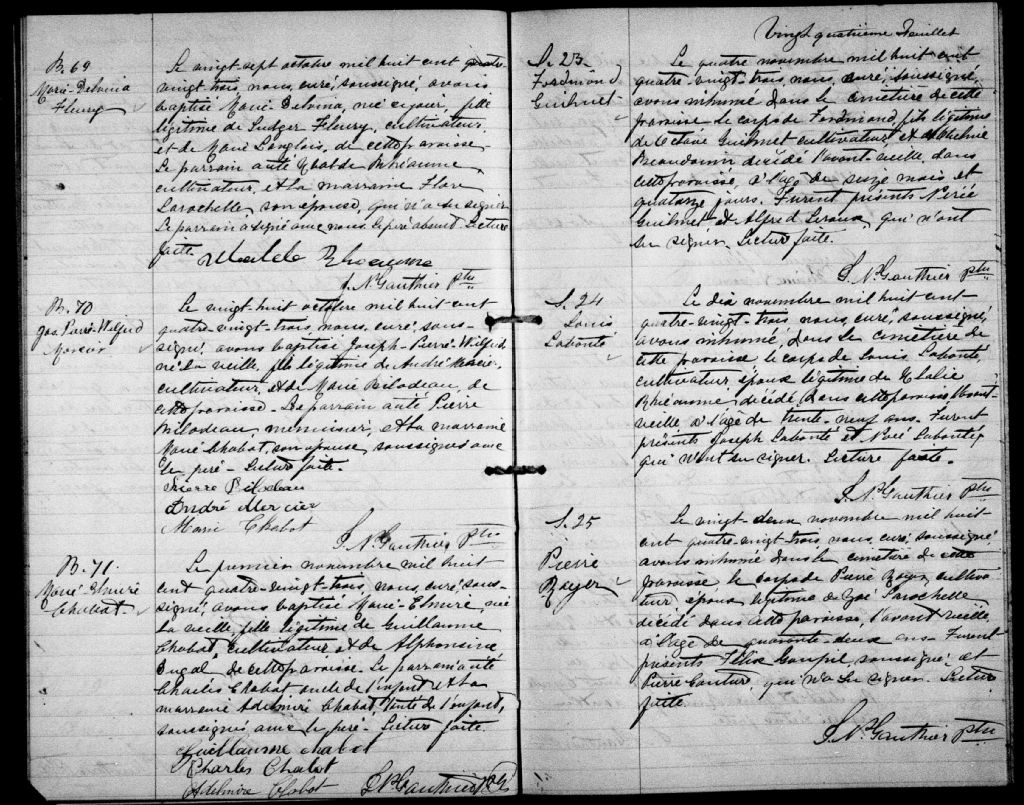 B. 69
Marie-Delvina
Fleury
Le vingt-sept octobre mil huit cent quatre-
vingt trois, nous, curé, soussigné, avons
baptisé Marie-Delvina, née ce jour, fille
légitime de Ludger Fleury, cultivateur
et de Marie Langlois, de cette paroisse.
Le parrain a été de Rhéaume,
cultivateur, et la marraine Flore
Larochelle, son épouse, qui n'a su signer
Le parrain a signé avec nous. Le père absent. Lecture
faite.
Rhéaume
J. N. Gauthier Ptre
B. 70
Jos Pierre-Wilfrid
Mercier
Le vingt-huit octobre mil huit cent
quatre-vingt-trois, nous, curé, sous-
signé, avons baptisé Joseph-Pierre-Wilfrid
né la veille, fils légitime de André Mercier
cultivateur, et de Marie Bilodeau, de
cette paroisse. Le parrain a été Pierre
Bilodeau menuisier, et la marraine
Marie Chabot, son épouse, soussignés avec
le père. Lecture faite.
Pierre Bilodeau
André Mercier
Marie Chabot
J. N. Gauthier Ptre
B. 71.
Marie-Elmire
Chabot
Le premier novembre mil huit
cent quatre-vingt-trois, nous, curé, sous-
signé, avons baptisé Marie-Elmire née
la veille, fille légitime de Guillaume
Chabot, cultivateur et de Alphonsine
Dugal de cette paroisse. Le parrain a été
Charles Chabot oncle de l'enfant et la
marraine Adelmire Chabot, tante de l'enfant,
soussignés avec le père. Lecture faite.
Guillaume Chabot
Charles Chabot
Adelmire Chabot
J. N. Gauthier Ptre
Vingt quatrième feuillet
S. 23
Ferdinand
Guilmet
Le quatre novembre mil huit cent
quatre-vingt-trois nous, curé, soussigné,
avons inhumé dans le cimetière de cette
paroisse le corps de Ferdinand, fils légitime
de Octave Guilmet cultivateur, et
Beaudoin décédé l'avant-veille, dans
cette paroisse, à l'âge de seize mois et
quatorze jours. Furent présents Nérée
Guilmet et Alfred Leroux, qui n'ont
su signer. Lecture faite.
J. N. Gauthier Ptre
S. 24
Louis
Labonté
Le dix novembre mil huit cent
quatre-vingt-trois nous, curé, soussigné,
avons inhumé, dans le cimetière de
cette paroisse le corps de Louis Labonté,
cultivateur, époux légitime de Elalie
Rhéaume décédé, dans cette paroisse l'avant-
veille, à l'âge de trente-neuf ans. Furent
présents Joseph Labonté et Noé Labonté,
qui n'ont su signer. Lecture faite.
J. N. Gauthier Ptre
S. 25
Pierre
Royer
Le vingt-deux novembre mil huit-
cent quatre-vingt-trois, nous, curé, soussigné
avons inhumé dans le cimetière de cette
paroisse le corps de Pierre Royer, cultiva-
teur époux légitime de Zoé Larochelle
décédé dans cette paroisse, l'avant veille,
à l'âge de quarante-deux ans Furent
présents Félix Goupil, soussigné, et
Pierre Couture, qui n'a su signer. Lecture
faite.
J. N. Gauthier Ptre